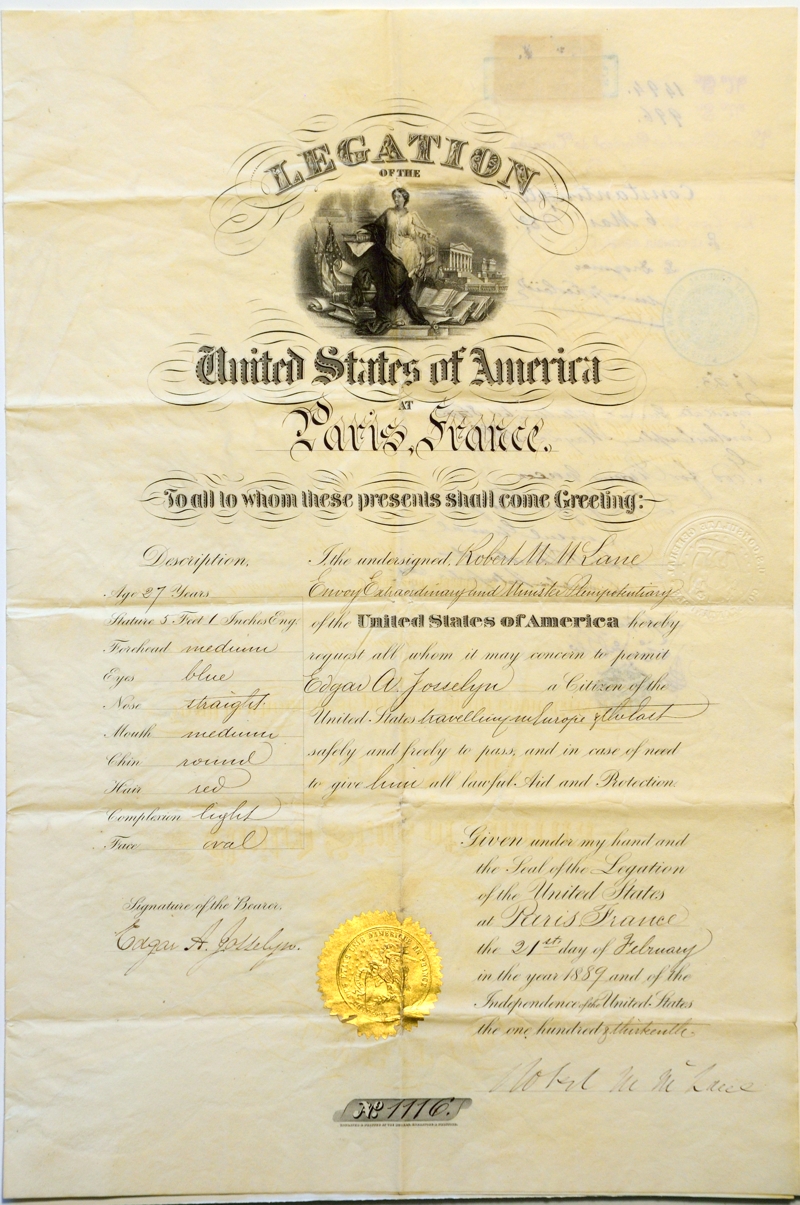 LEGATION
OF THE
United States of America
AT
Paris, France.
To all to whom these presents shall come Greeting:
Description,
Age 27 Years
Stature 5 Feet 1 Inches Eng.
Forehead medium
Eyes blue
Nose straight
Mouth medium
Chin round
Hair red
Complexion light
Face oval
Signature of the Bearer.
Edgar A. Josselyn.
I, the undersigned, Robert M. McLane
Envoy Extraordinary and Minister Plenipotentiary
of the United States of America hereby
request all whom it may concern to permit
Edgar A. Josselyn a Citizen of the
United States travelling in Europe & the East
safely and freely to pass, and in case of need
to give him all lawful Aid and Protection.
Given under my hand and
the Seal of the Legation
of the United States
at Paris France
the 21st day of February
in the year 1889 and of the
Independence of the United States
the one hundred & thirteenth.
Robert M McLane
No 1116.